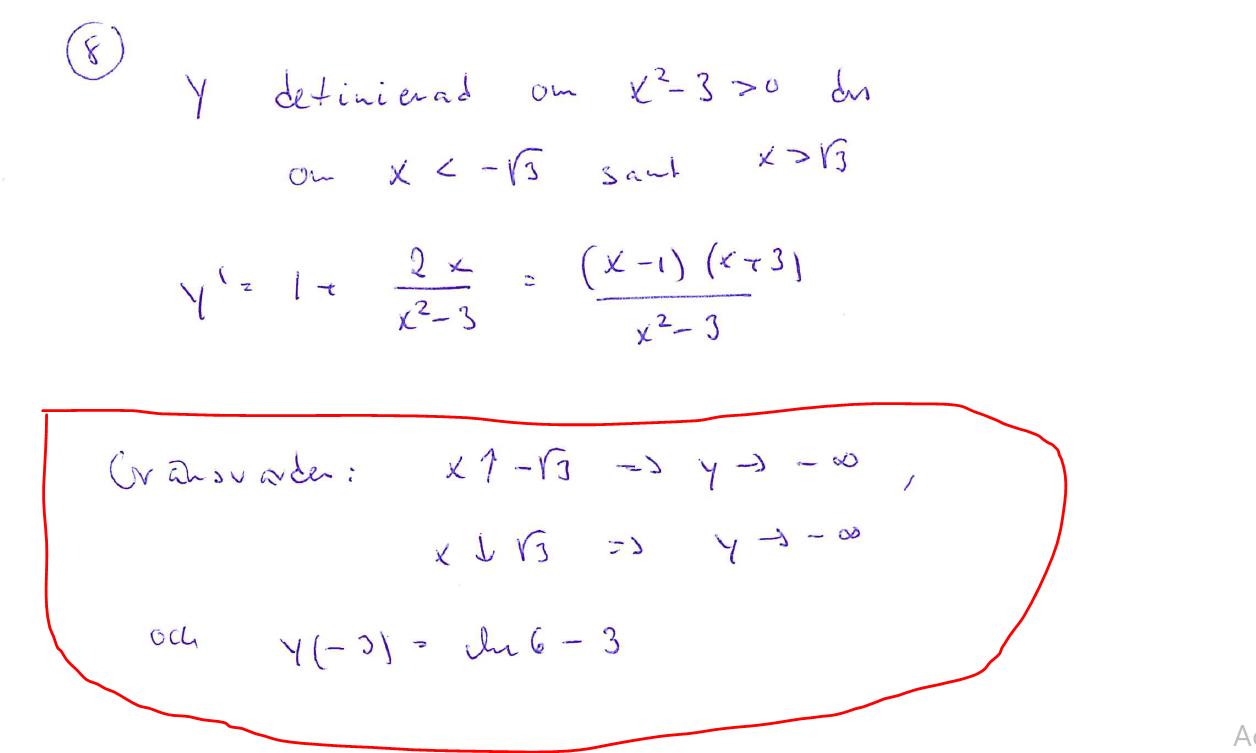 8
y definierad om x²-3 >0 dvs
om x < -√3 samt x > √3
y' = 1 + 2x/(x²-3) = (x-1)(x+3)/(x²-3)
Gränsvärden: x↑-√3 => y → -∞ ,
x ↓ √3 => y → -∞
och y(-3) = ln 6 - 3